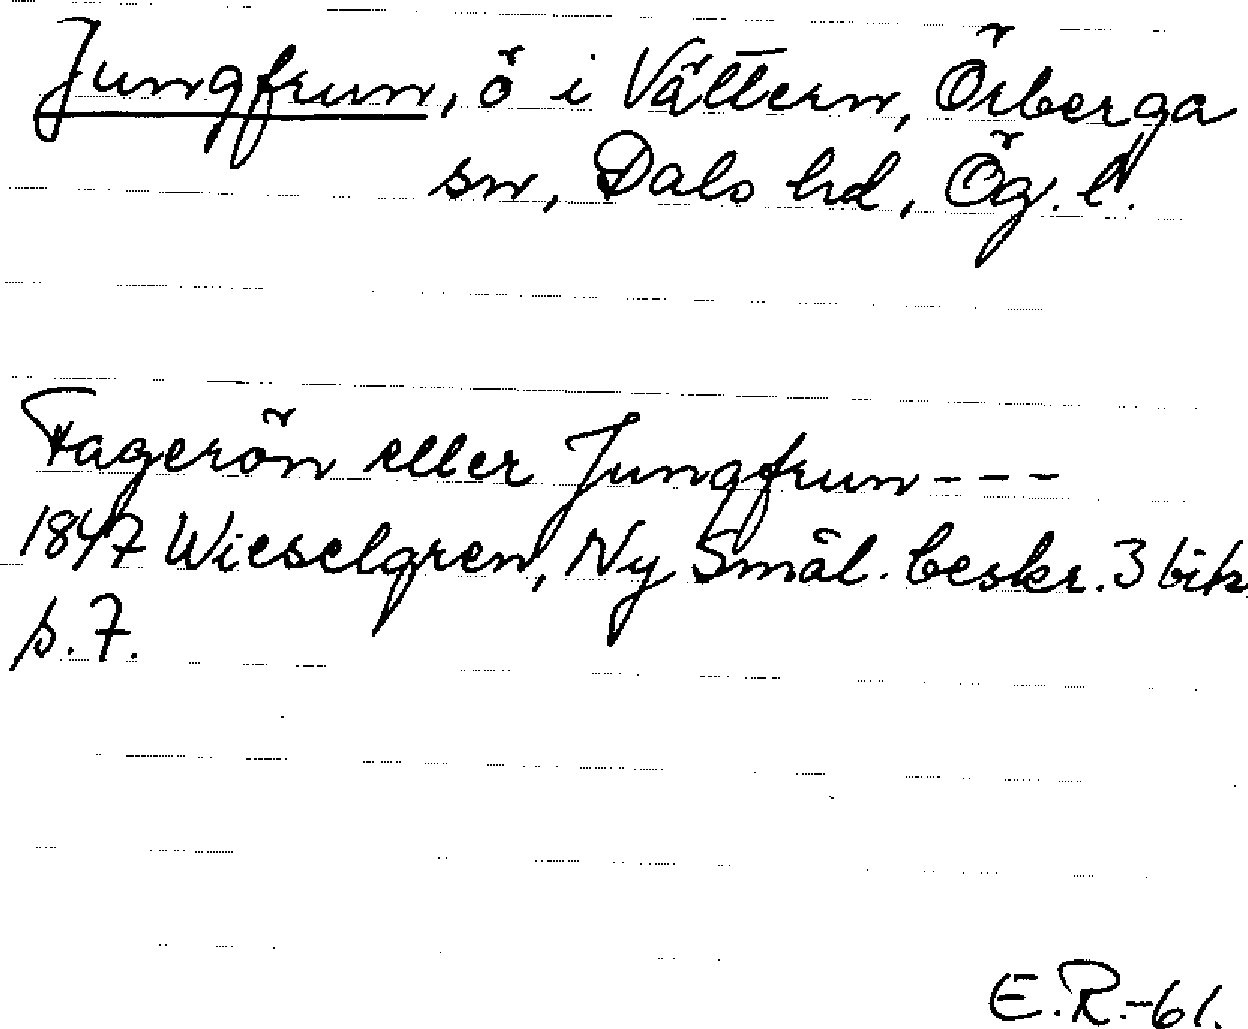 Jungfrun, ö i Vättern, Örberga
sn, Dals hd, Ög. l.
Fagerön eller Jungfrun---
1847 Wieselgren, Ny Smål. beskr. 3 bih.
s. 7.
E.R.-61.